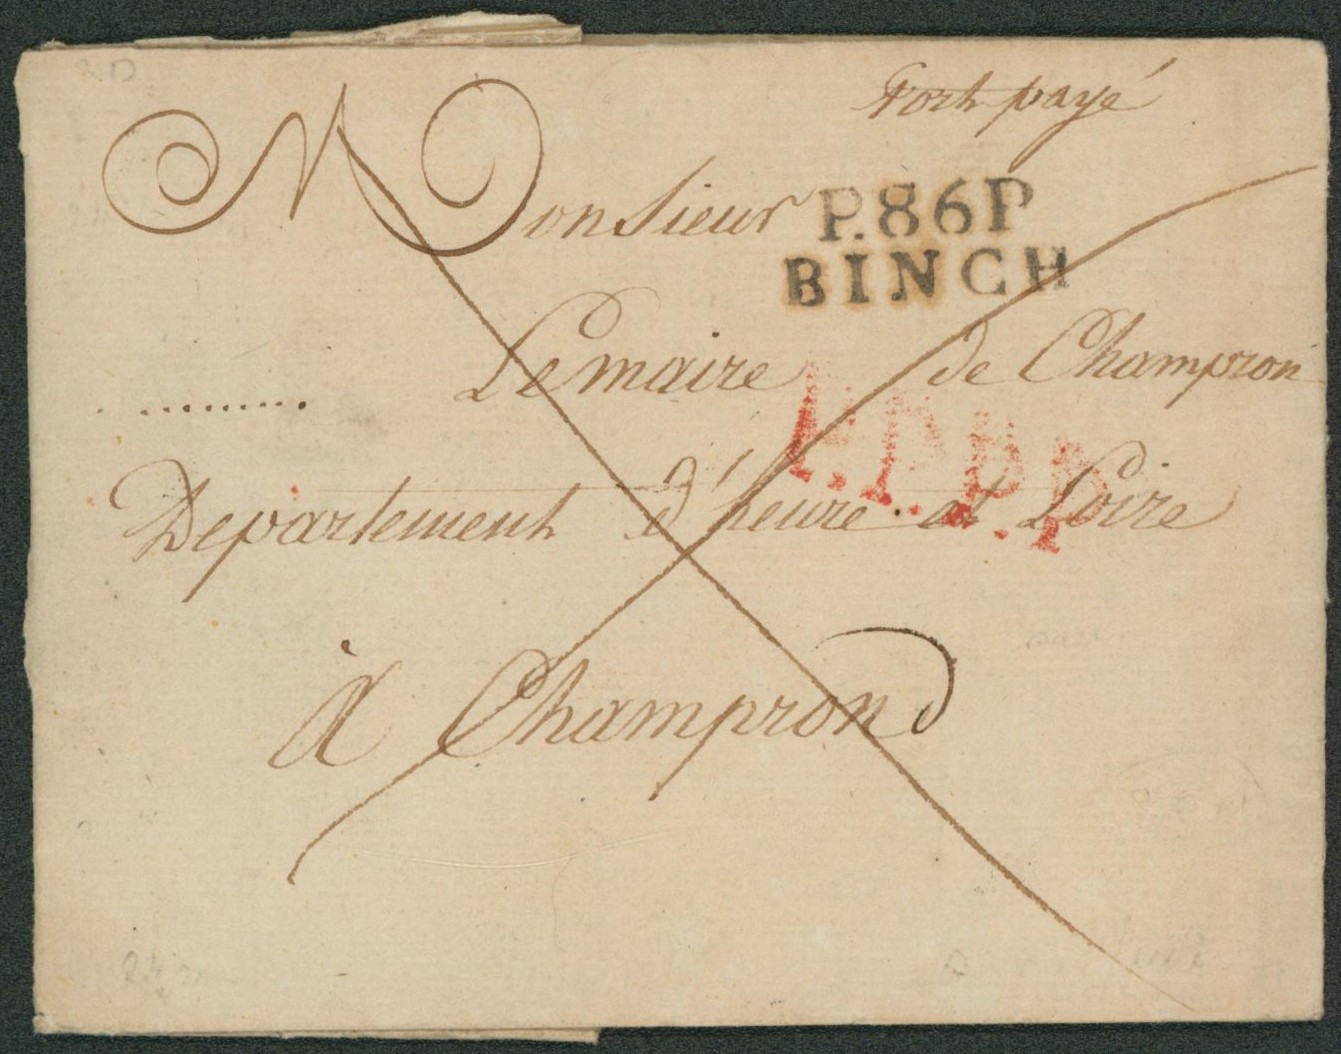 Port payé
Monsieur
P.86P
BINCH
Lemaire de Champron
P.P.P.P
Departement d'heure et Loire
à Champrond